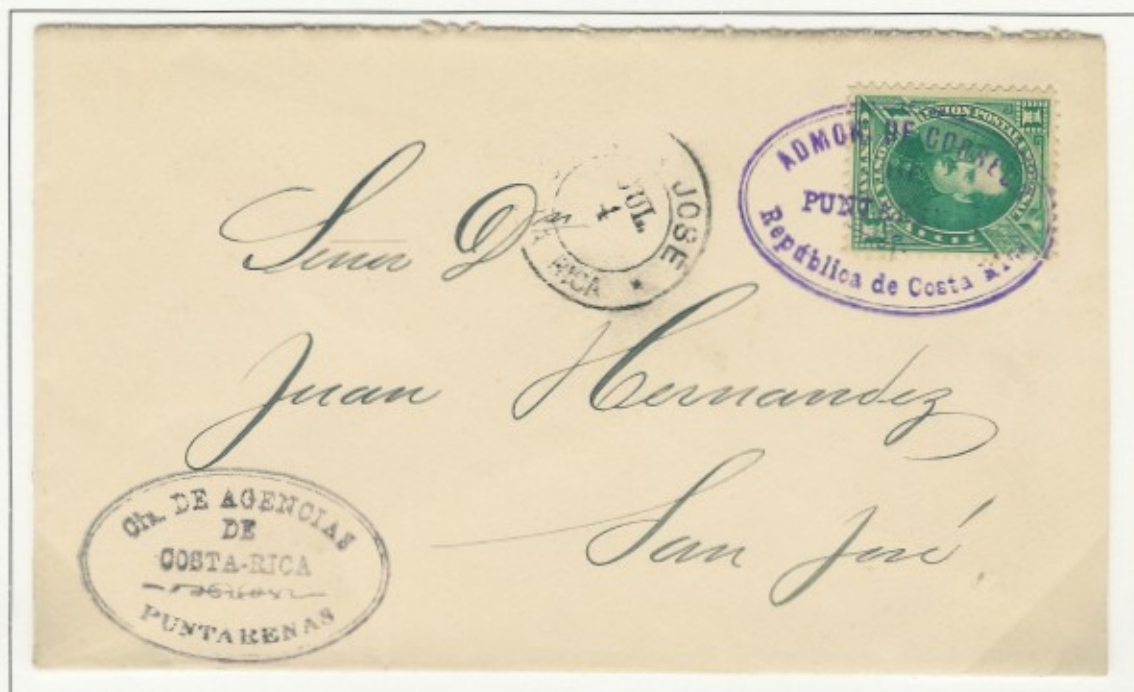 Señor Dn
Juan Hernandez
San José.
JOSE
JUL
1
RICA
ADMON. DE CORREOS
República de Costa Rica
UNION POSTAL
1
1
Cia. DE AGENCIAS
DE
COSTA-RICA
PUNTARENAS